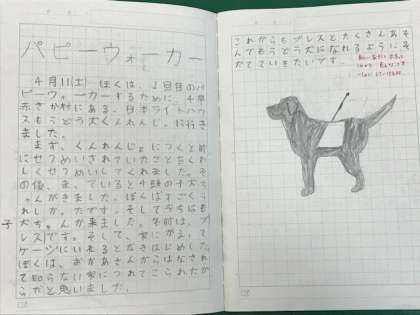 パピーウォーカー
4月11(土)ぼくは、2回目のパ
ピーウォーカーするために、千早
赤さか村にある、日本ライトハウ
スもうどう犬くんれんじょうに行き
ました。
まず、くんれんじょうにつくと前
にせつめいされていたことをくわ
しくせつめいしてくれました。そ
の後、まっていると4頭の子犬ち
ゃんがきました。ぼくはすごくう
れしかったです。そしてうちにも
子犬ちゃんが来ました。名前は、プ
レスです。そして、家にかえって
ケージにいれるとなきはじめした。
ぼくは、おかあさんからはなされ
て知らない家につれてこられたか
らだと思いました。
これからもプレスとたくさんあそ
んでもうどう犬になれるようにそ
だてていきたいです。